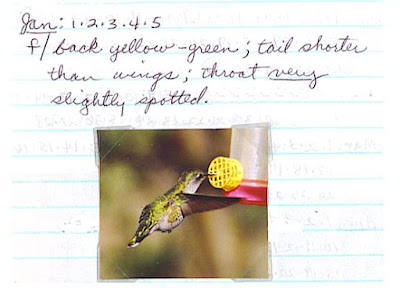 Jan: 1·2·3·4·5
f/ back yellow-green; tail shorter
than wings; throat very
slightly spotted.